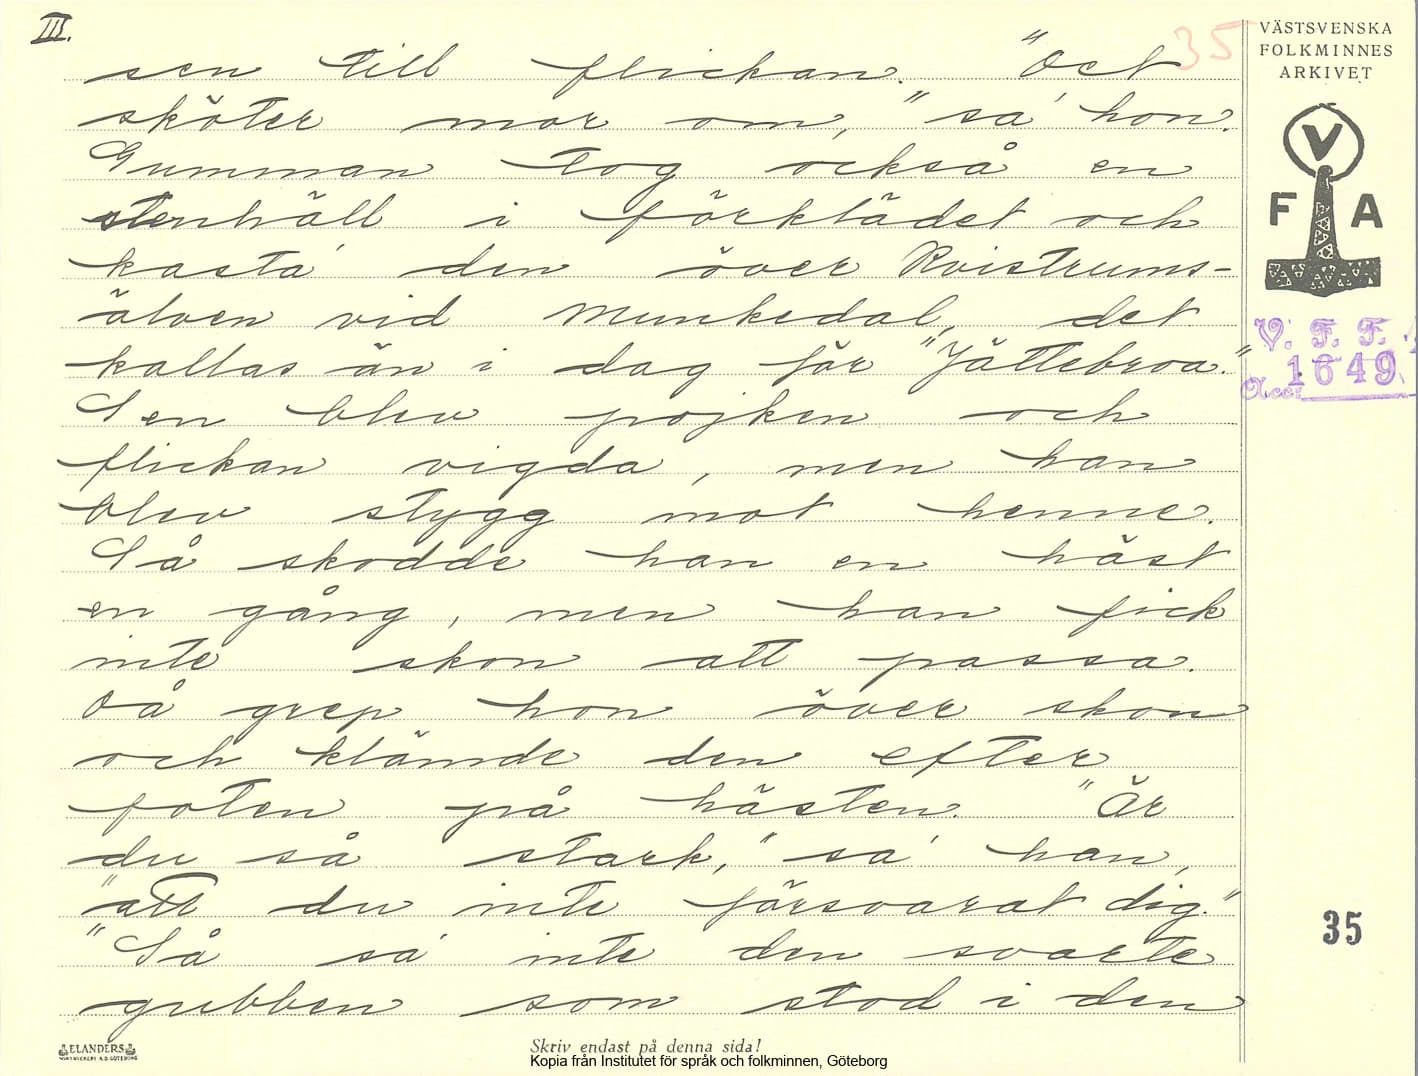 III.
35
VÄSTSVENSKA
FOLKMINNES
ARKIVET
V
F A
V. F. F.
1649
Acc:
sen till flickan. "Det
sköter mor om," sa' hon.
Gumman tog också en
stenhäll i förklädet och
kasta' den över Kvistrums-
älven vid Munkedal, det
kallas än i dag för "Jättebroa."
Sen blev pojken och
flickan vigda, men han
blev stygg mot henne.
Så skodde han en häst
en gång, men han fick
inte skon att passa.
Då grep hon över skon
och klämde den efter
foten på hästen. "Är
du så stark," sa' han,
"att du inte försvarat dig."
"Så sa' inte den svarte
gubben som stod i den
35
ELANDERS
Skriv endast på denna sida!
Kopia från Institutet för språk och folkminnen, Göteborg